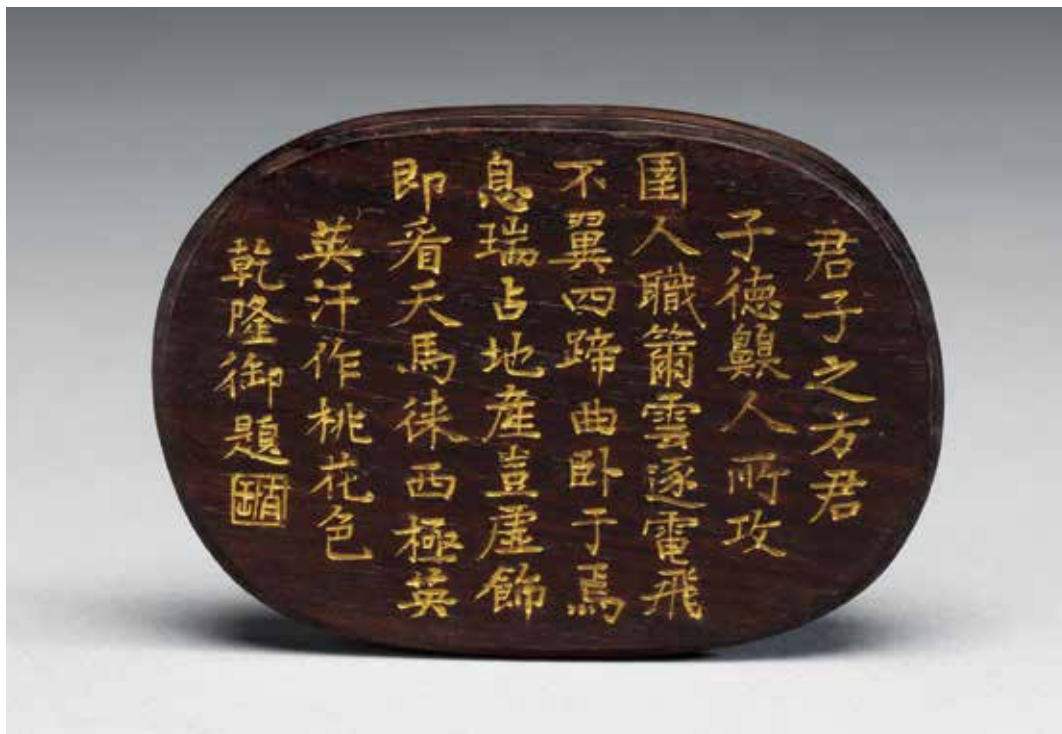 君子之方君
子德人所攻
圉人職籋雲逐電飛
不翼四蹄曲卧于焉
息瑞占地產豈虛飾
即看天馬徠西極英
英汗作桃花色
乾隆御題